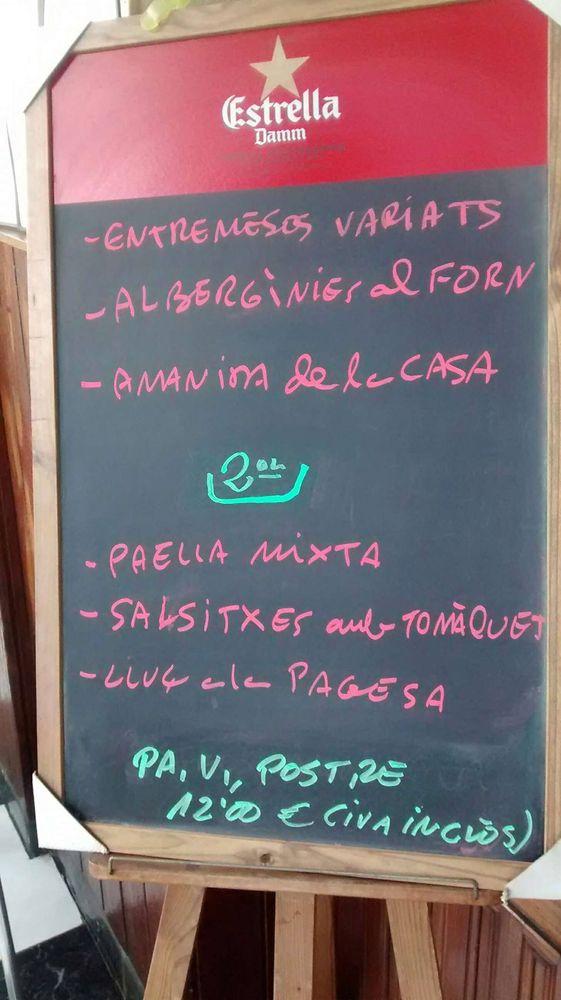 Estrella
Damm
- ENTREMESOS VARIATS
- ALBERGÌNIES al FORN
- AMANIDA de la CASA
2on
- PAELLA MIXTA
- SALSITXES amb TOMÀQUET
- LLUÇ a la PAGESA
PA, VI, POSTRE
12'00 € (IVA INCLÒS)